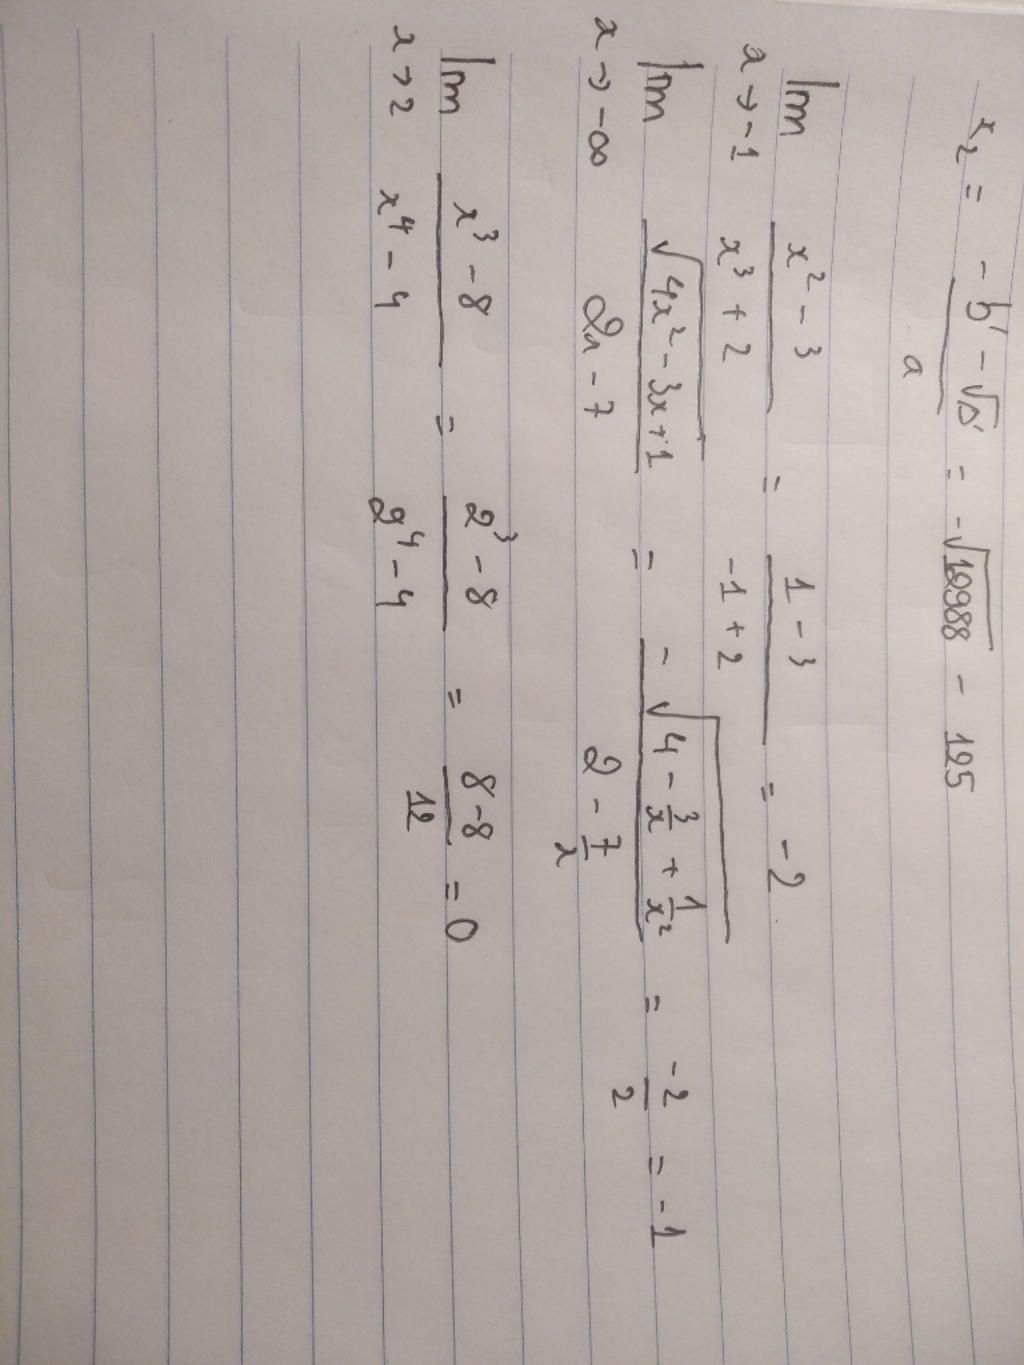 x₂ = (-b' - √Δ')/a = -√12988 - 125
lim x→-1 (x² - 3)/(x³ + 2) = (1 - 3)/(-1 + 2) = -2
lim x→-∞ √(4x² - 3x + 1)/(2x - 7) = -√(4 - 3/x + 1/x²)/(2 - 7/x) = -2/2 = -1
lim x→2 (x³ - 8)/(x⁴ - 4) = (2³ - 8)/(2⁴ - 4) = (8 - 8)/12 = 0